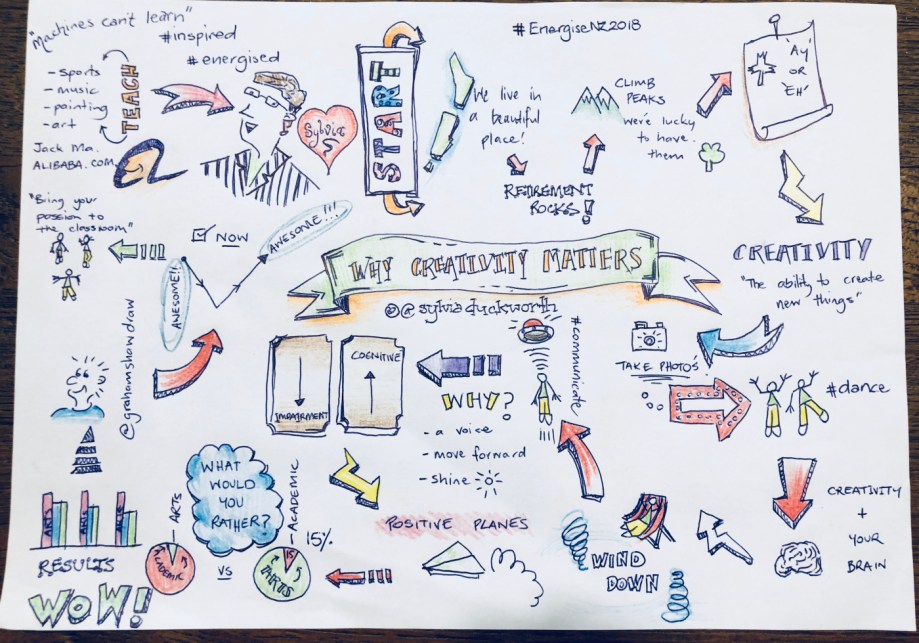 "Machines can't learn"
#inspired
#energised
- sports
- music
- painting
- art
TEACH
Jack Ma.
ALIBABA.COM
Sylvia
START
#EnergiseNZ2018
We live in
a beautiful
place!
RETIREMENT
ROCKS!
CLIMB
PEAKS
we're lucky
to have
them
'Ay'
OR
'EH'
"Bring your
passion to
the classroom"
NOW
AWESOME!!
AWESOME!!!
WHY CREATIVITY MATTERS
©@sylviaduckworth
CREATIVITY
"The ability to create
new things"
@grahamshowdraw
IMPAIRMENT
COGNITIVE
WHY?
- a voice
- move forward
- shine
#communicate
TAKE PHOTO'S!
#dance
CREATIVITY
+
YOUR
BRAIN
WIND
DOWN
POSITIVE PLANES
WHAT
WOULD
YOU
RATHER?
ARTS
ACADEMIC
VS
ACADEMIC
15%
15
ARTS
ARTS
ARTS
RESULTS
WOW!